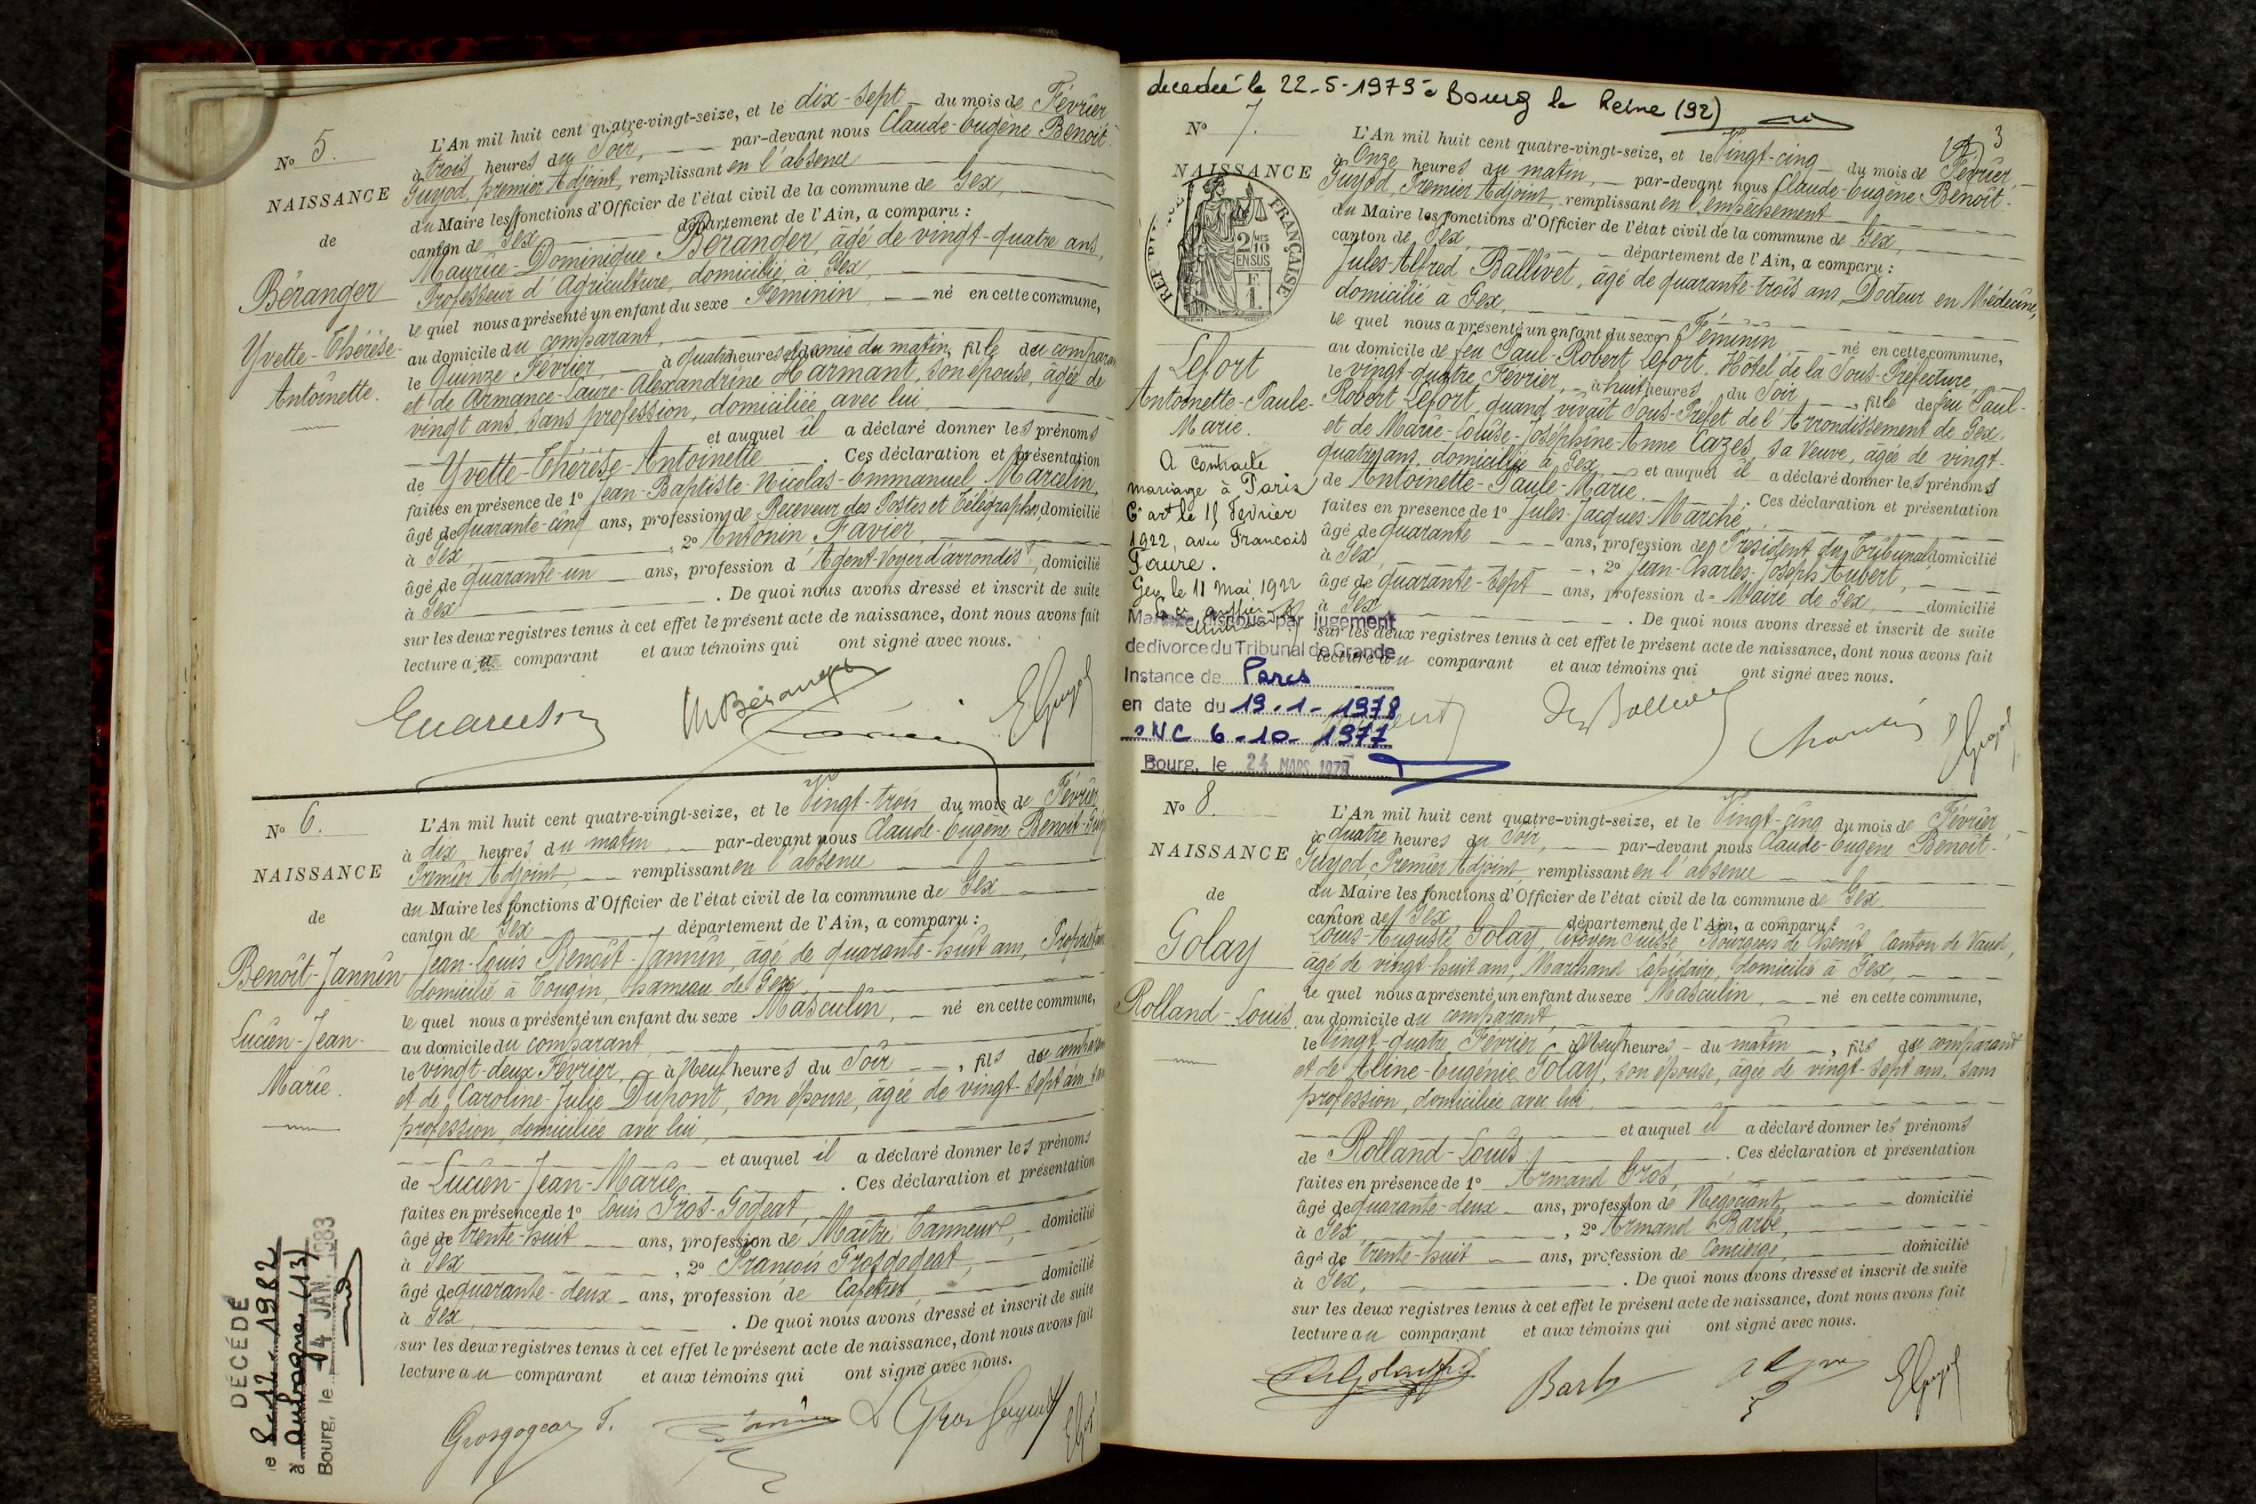 N° 5.
NAISSANCE
de
Béranger
Yvette-Thérèse-
Antoinette.
L'An mil huit cent quatre-vingt-seize, et le dix-sept du mois de Février
à trois heures du Soir, par-devant nous Claude-Eugène Benoît-
Guyod, premier Adjoint, remplissant en l'absence
du Maire les fonctions d'Officier de l'état civil de la commune de Gex,
canton de Gex département de l'Ain, a comparu :
Maurice-Dominique Béranger, âgé de vingt-quatre ans,
Professeur d'Agriculture, domicilié à Gex,
le quel nous a présenté un enfant du sexe Féminin, né en cette commune,
au domicile du comparant,
le Quinze Février, à quatre heures et demie du matin, fille du comparant
et de Armance-Laure-Alexandrine Harmant, son épouse, âgée de
vingt ans, sans profession, domiciliée avec lui
et auquel il a déclaré donner les prénoms
de Yvette-Thérèse-Antoinette. Ces déclaration et présentation
faites en présence de 1° Jean-Baptiste-Nicolas-Emmanuel Marcelin,
âgé de quarante-cinq ans, profession de Receveur des Postes et Télégraphes, domicilié
à Gex, 2° Antonin Favier,
âgé de quarante-un ans, profession d'Agent-Voyer d'arrondist, domicilié
à Gex. De quoi nous avons dressé et inscrit de suite
sur les deux registres tenus à cet effet le présent acte de naissance, dont nous avons fait
lecture au comparant et aux témoins qui ont signé avec nous.
M Béranger
EGuyod
N° 6.
NAISSANCE
de
Benoît-Jannin
Lucien-Jean-
Marie.
L'An mil huit cent quatre-vingt-seize, et le Vingt-trois du mois de Février
à dix heures du matin, par-devant nous Claude-Eugène Benoît-Guyod
Premier Adjoint, remplissant en l'absence
du Maire les fonctions d'Officier de l'état civil de la commune de Gex
canton de Gex département de l'Ain, a comparu :
Jean-Louis Benoît-Jannin, âgé de quarante-huit ans, Propriétaire
domicilié à Tougin, hameau de Gex,
le quel nous a présenté un enfant du sexe Masculin, né en cette commune,
au domicile du comparant,
le vingt-deux Février, à Neuf heures du Soir, fils du comparant
et de Caroline-Julie Dupont, son épouse, âgée de vingt-sept ans, sans
profession, domiciliée avec lui,
et auquel il a déclaré donner les prénoms
de Lucien-Jean-Marie. Ces déclaration et présentation
faites en présence de 1° Louis Gros-Gogeat,
âgé de trente-huit ans, profession de Maître Tanneur, domicilié
à Gex, 2° François Grosgogeat,
âgé de quarante-deux ans, profession de Cafetier, domicilié
à Gex,. De quoi nous avons dressé et inscrit de suite
sur les deux registres tenus à cet effet le présent acte de naissance, dont nous avons fait
lecture au comparant et aux témoins qui ont signé avec nous.
Grosgogeat F.
DÉCÉDÉ
le 8-12-1982
à Aubagne (13)
Bourg, le 4 JAN. 1983
décédée le 22-5-1979 à Bourg la Reine (92)
3
N° 7.
NAISSANCE
FRANÇAISE
2 MES
10
EN SUS
Lefort
Antoinette-Paule-
Marie.
A contracté
mariage à Paris
6e art le 15 Février
1922, avec François
Faure.
Gex le 11 Mai 1922
Mariage dissous par jugement
de divorce du Tribunal de Grande
Instance de Paris
en date du 19-1-1978
ONC 6-10-1977
Bourg, le 24 MARS 1978
L'An mil huit cent quatre-vingt-seize, et le Vingt-cinq du mois de Février,
à Onze heures du matin, par-devant nous Claude-Eugène Benoît-
Guyod, Premier Adjoint, remplissant en l'empêchement
du Maire les fonctions d'Officier de l'état civil de la commune de Gex,
canton de Gex, département de l'Ain, a comparu :
Jules-Alfred Ballivet, âgé de quarante-trois ans, Docteur en Médecine,
domicilié à Gex,
le quel nous a présenté un enfant du sexe Féminin né en cette commune,
au domicile de feu Paul-Robert Lefort, Hôtel de la Sous-Préfecture,
le vingt-quatre Février, à huit heures du Soir, fille de feu Paul-
Robert Lefort, quand vivait Sous-Préfet de l'Arrondissement de Gex,
et de Marie-Louise-Joséphine-Anne Cazes, sa Veuve, âgée de vingt-
quatre ans, domiciliée à Gex, et auquel il a déclaré donner les prénoms
de Antoinette-Paule-Marie. Ces déclaration et présentation
faites en présence de 1° Jules-Jacques Marché,
âgé de quarante ans, profession de Président du Tribunal domicilié
à Gex, 2° Jean-Charles-Joseph Aubert,
âgé de quarante-sept ans, profession de Maire de Gex, domicilié
à Gex. De quoi nous avons dressé et inscrit de suite
sur les deux registres tenus à cet effet le présent acte de naissance, dont nous avons fait
lecture au comparant et aux témoins qui ont signé avec nous.
EGuyod
N° 8.
NAISSANCE
de
Golay
Rolland-Louis.
L'An mil huit cent quatre-vingt-seize, et le Vingt-cinq du mois de Février,
à quatre heures du Soir, par-devant nous Claude-Eugène Benoît-
Guyod, Premier Adjoint, remplissant en l'absence
du Maire les fonctions d'Officier de l'état civil de la commune de Gex,
canton de Gex département de l'Ain, a comparu :
Louis-Auguste Golay, Citoyen Suisse, Bourgeois de Chenit, Canton de Vaud,
âgé de vingt-huit ans, Marchand Lapidaire, domicilié à Gex,
le quel nous a présenté un enfant du sexe Masculin, né en cette commune,
au domicile du comparant,
le Vingt-quatre Février, à Neuf heures du matin, fils du comparant
et de Aline-Eugénie Golay, son épouse, âgée de vingt-sept ans, sans
profession, domiciliée avec lui,
et auquel il a déclaré donner les prénoms
de Rolland-Louis. Ces déclaration et présentation
faites en présence de 1° Armand Gros,
âgé de quarante-deux ans, profession de Négociant, domicilié
à Gex, 2° Armand Barbé,
âgé de trente-huit ans, profession de Concierge, domicilié
à Gex,. De quoi nous avons dressé et inscrit de suite
sur les deux registres tenus à cet effet le présent acte de naissance, dont nous avons fait
lecture au comparant et aux témoins qui ont signé avec nous.
Barbé
EGuyod